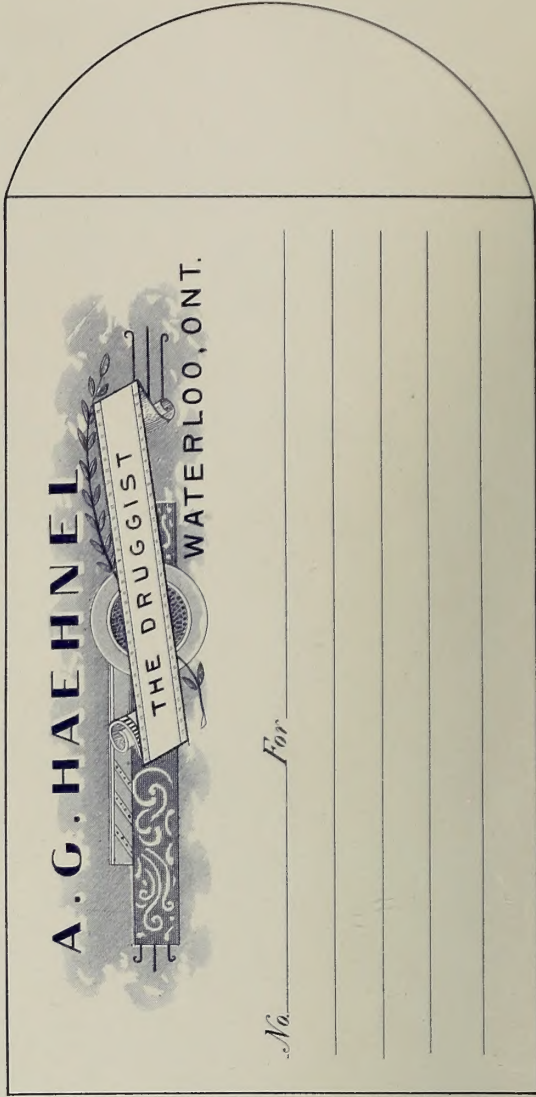 A. G. HAEHNEL
THE DRUGGIST
WATERLOO, ONT.
No. For